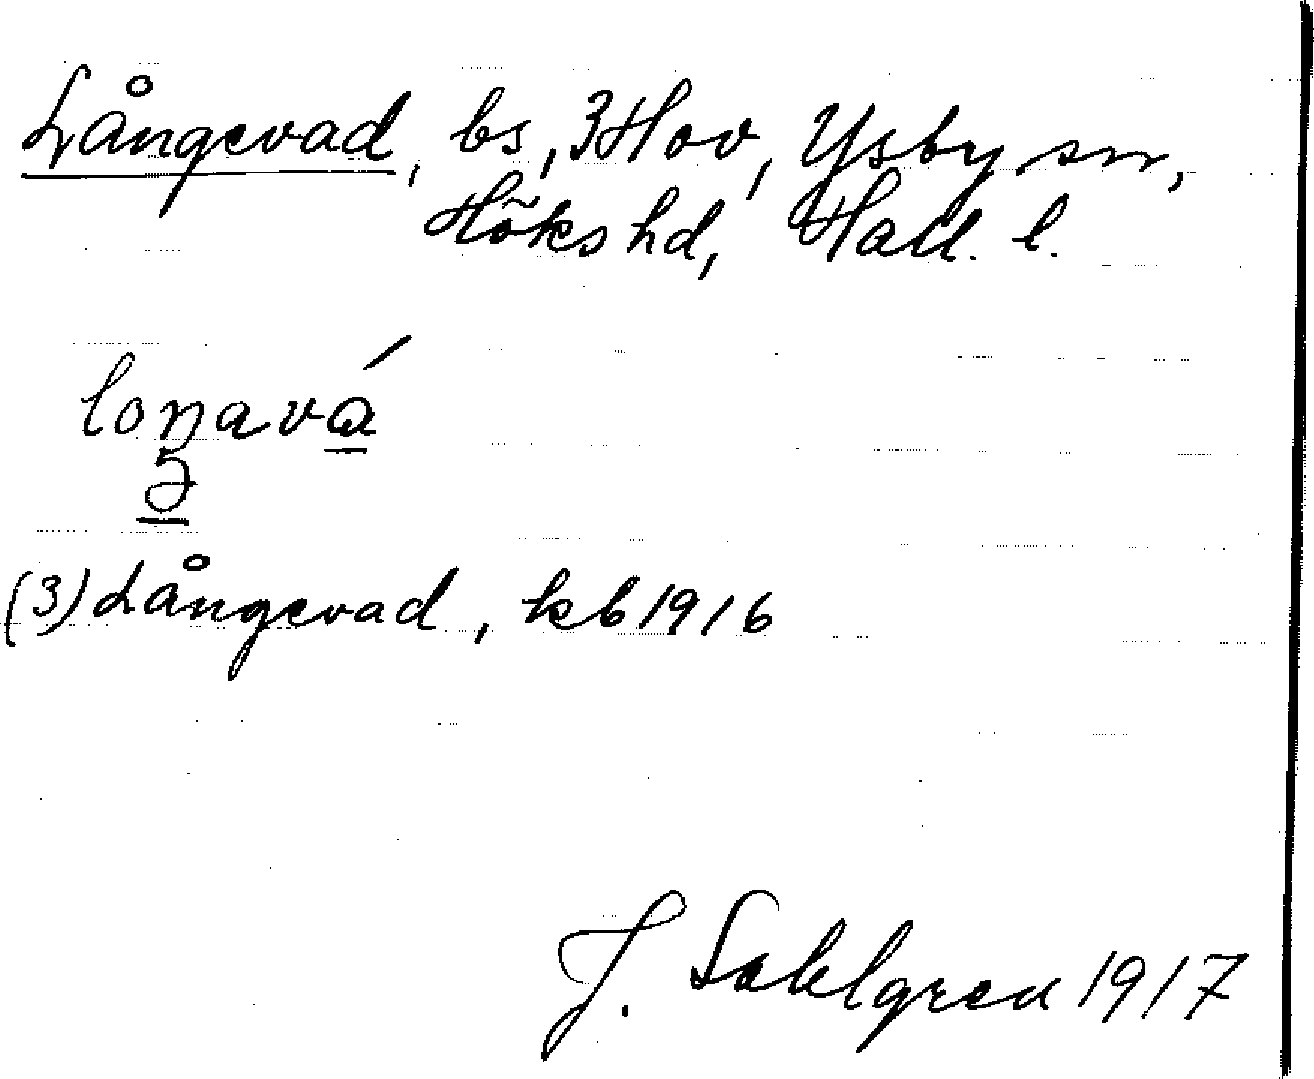 Långevad, bs, 3 Hov, Ysby sn,
Höks hd, Hall. l.
loŋavá
(3) Långevad, kb 1916
J. Sahlgren 1917